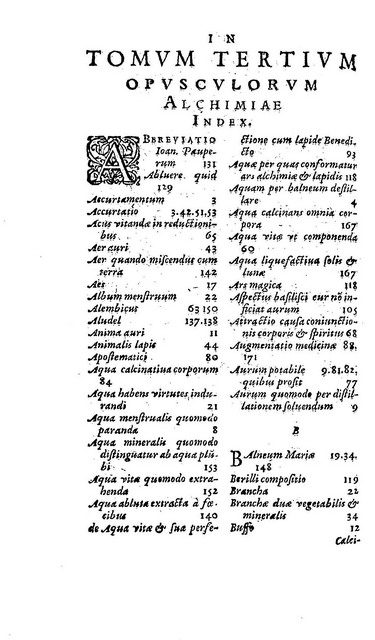 IN
TOMVM TERTIVM
OPVSCVLORVM
ALCHIMIAE
INDEX.
ABBREVIATIO
Ioan. Paupe-
rum 131
Abluere quid
129
Accurtamentum 3
Accurtatio 3.42.51.53
Acus vitandæ in reductioni-
bus 65
Aer auri 43
Aer quando miscendus cum
terra 142
Aes 17
Album menstruum 22
Alembicus 63 150
Aludel 137.138
Anima auri 11
Animalis lapis 44
Apostematici 80
Aqua calcinatiua corporum
84
Aqua habens virtutes indu-
randi 21
Aqua menstrualis quomodo
paranda 8
Aqua mineralis quomodo
distinguatur ab aqua plu-
bi 153
Aqua vitæ quomodo extra-
henda 152
Aqua abluta extracta à fæ-
cibus 140
de Aqua vitæ & sua perfe-
ctione cum lapide Benedi-
cto 93
Aquæ per quas conformatur
ars alchimiæ & lapidis 118
Aquam per balneum destil-
lare 4
Aqua calcinans omnia cor-
pora 167
Aqua vitæ vt componenda
69
Aqua liquefactiua solis &
lunæ 167
Ars magica 118
Aspectus basilisci cur nō in-
ficiat aurum 105
Attractio causa coniunctio-
nis corporis & spiritus 68
Augmentatio medicinæ 88,
171
Aurum potabile 9.81.82,
quibus profit 77
Aurum quomodo per distil-
lationem soluendum 9
B
BAlneum Mariæ 19.34.
148
Berilli compositio 119
Brancha 22
Branchæ duæ vegetabilis &
mineralis 34
Buffo 12
Calci-